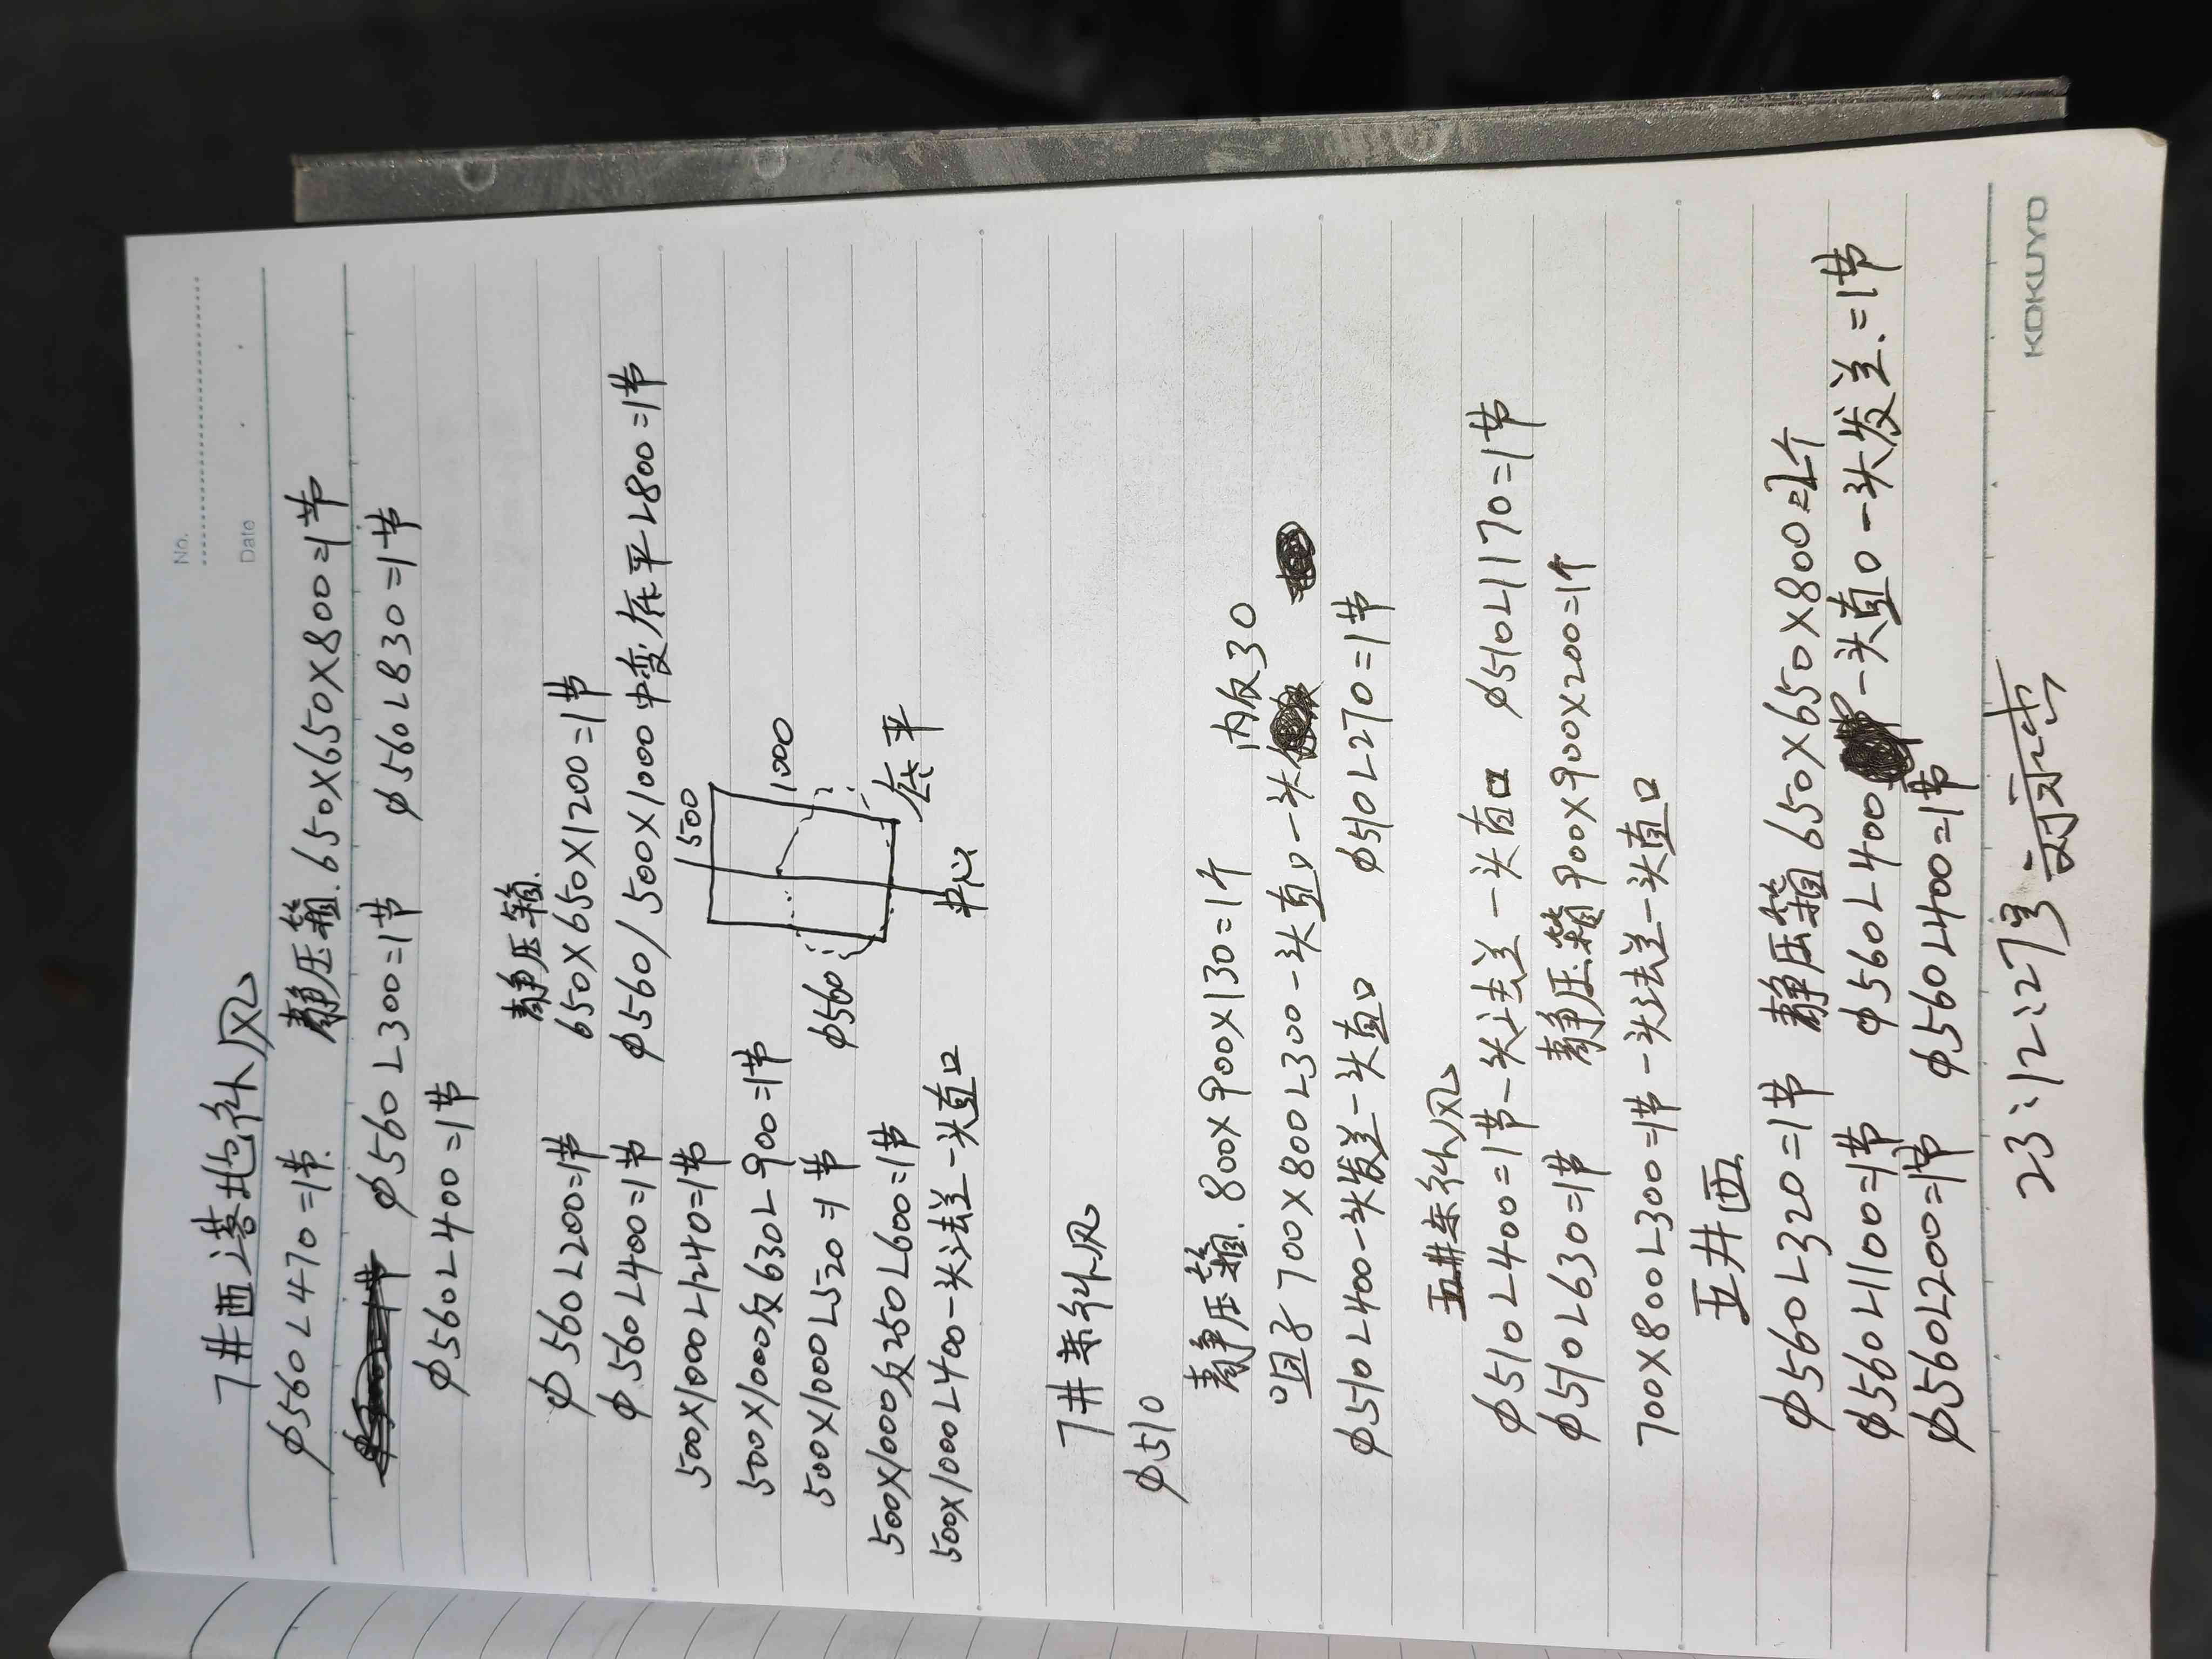 No.
Date
7井西落地补风
φ560L470=1节. 静压箱.650X650X800=1节
φ560L300=1节 φ560L830=1节
φ560L400=1节
静压箱.
φ560L200=1节 650X650X1200=1节
φ560L400=1节 φ560/500X1000中变底平L800=1节
500X1000L1240=1节 500
500X1000反630L900=1节 1000
500X1000L520=1节 φ560
500X1000反250L600=1节 底平
500X1000L400一头法兰一头直口 中心
7井东补风
φ510
静压箱.800X900X130=1个 内反30
咀子700X800L300一头直口一头
φ510L400一头发兰一头直口 φ510L270=1节
五井东补风
φ510L400=1节一头法兰一头直口 φ510L1170=1节
φ510L630=1节 静压箱900X900X200=1个
700X800L300=1节一头法兰一头直口
五井西
φ560L320=1节 静压箱650X650X800=1个
φ560L1100=1节 φ560L400一头直口一头发兰.=1节
φ560L200=1节 φ560L400=1节
23:12:27号
KOKUYO